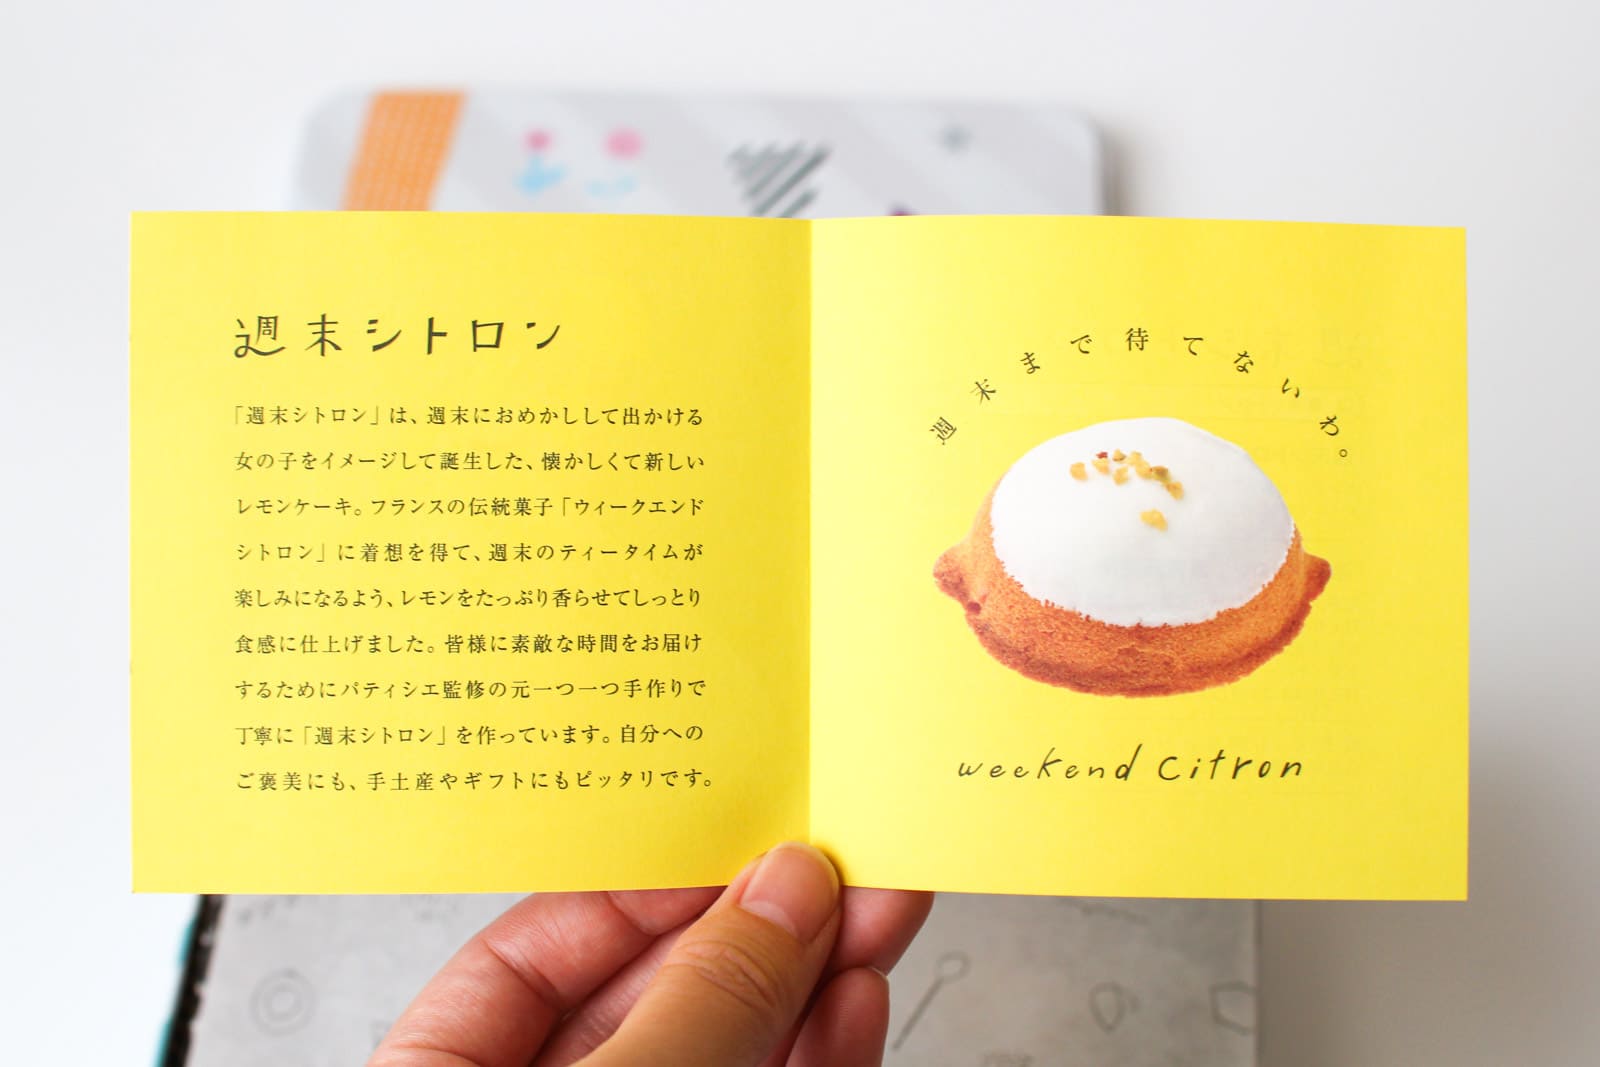 週末シトロン
「週末シトロン」は、週末におめかしして出かける
女の子をイメージして誕生した、懐かしくて新しい
レモンケーキ。フランスの伝統菓子「ウィークエンド
シトロン」に着想を得て、週末のティータイムが
楽しみになるよう、レモンをたっぷり香らせてしっとり
食感に仕上げました。皆様に素敵な時間をお届け
するためにパティシエ監修の元一つ一つ手作りで
丁寧に「週末シトロン」を作っています。自分への
ご褒美にも、手土産やギフトにもピッタリです。
週末まで待てないわ。
weekend citron